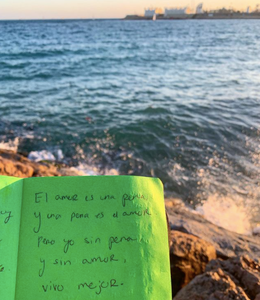 El amor es una pena
y una pena es el amor
Pero yo sin pena
y sin amor,
vivo mejor.